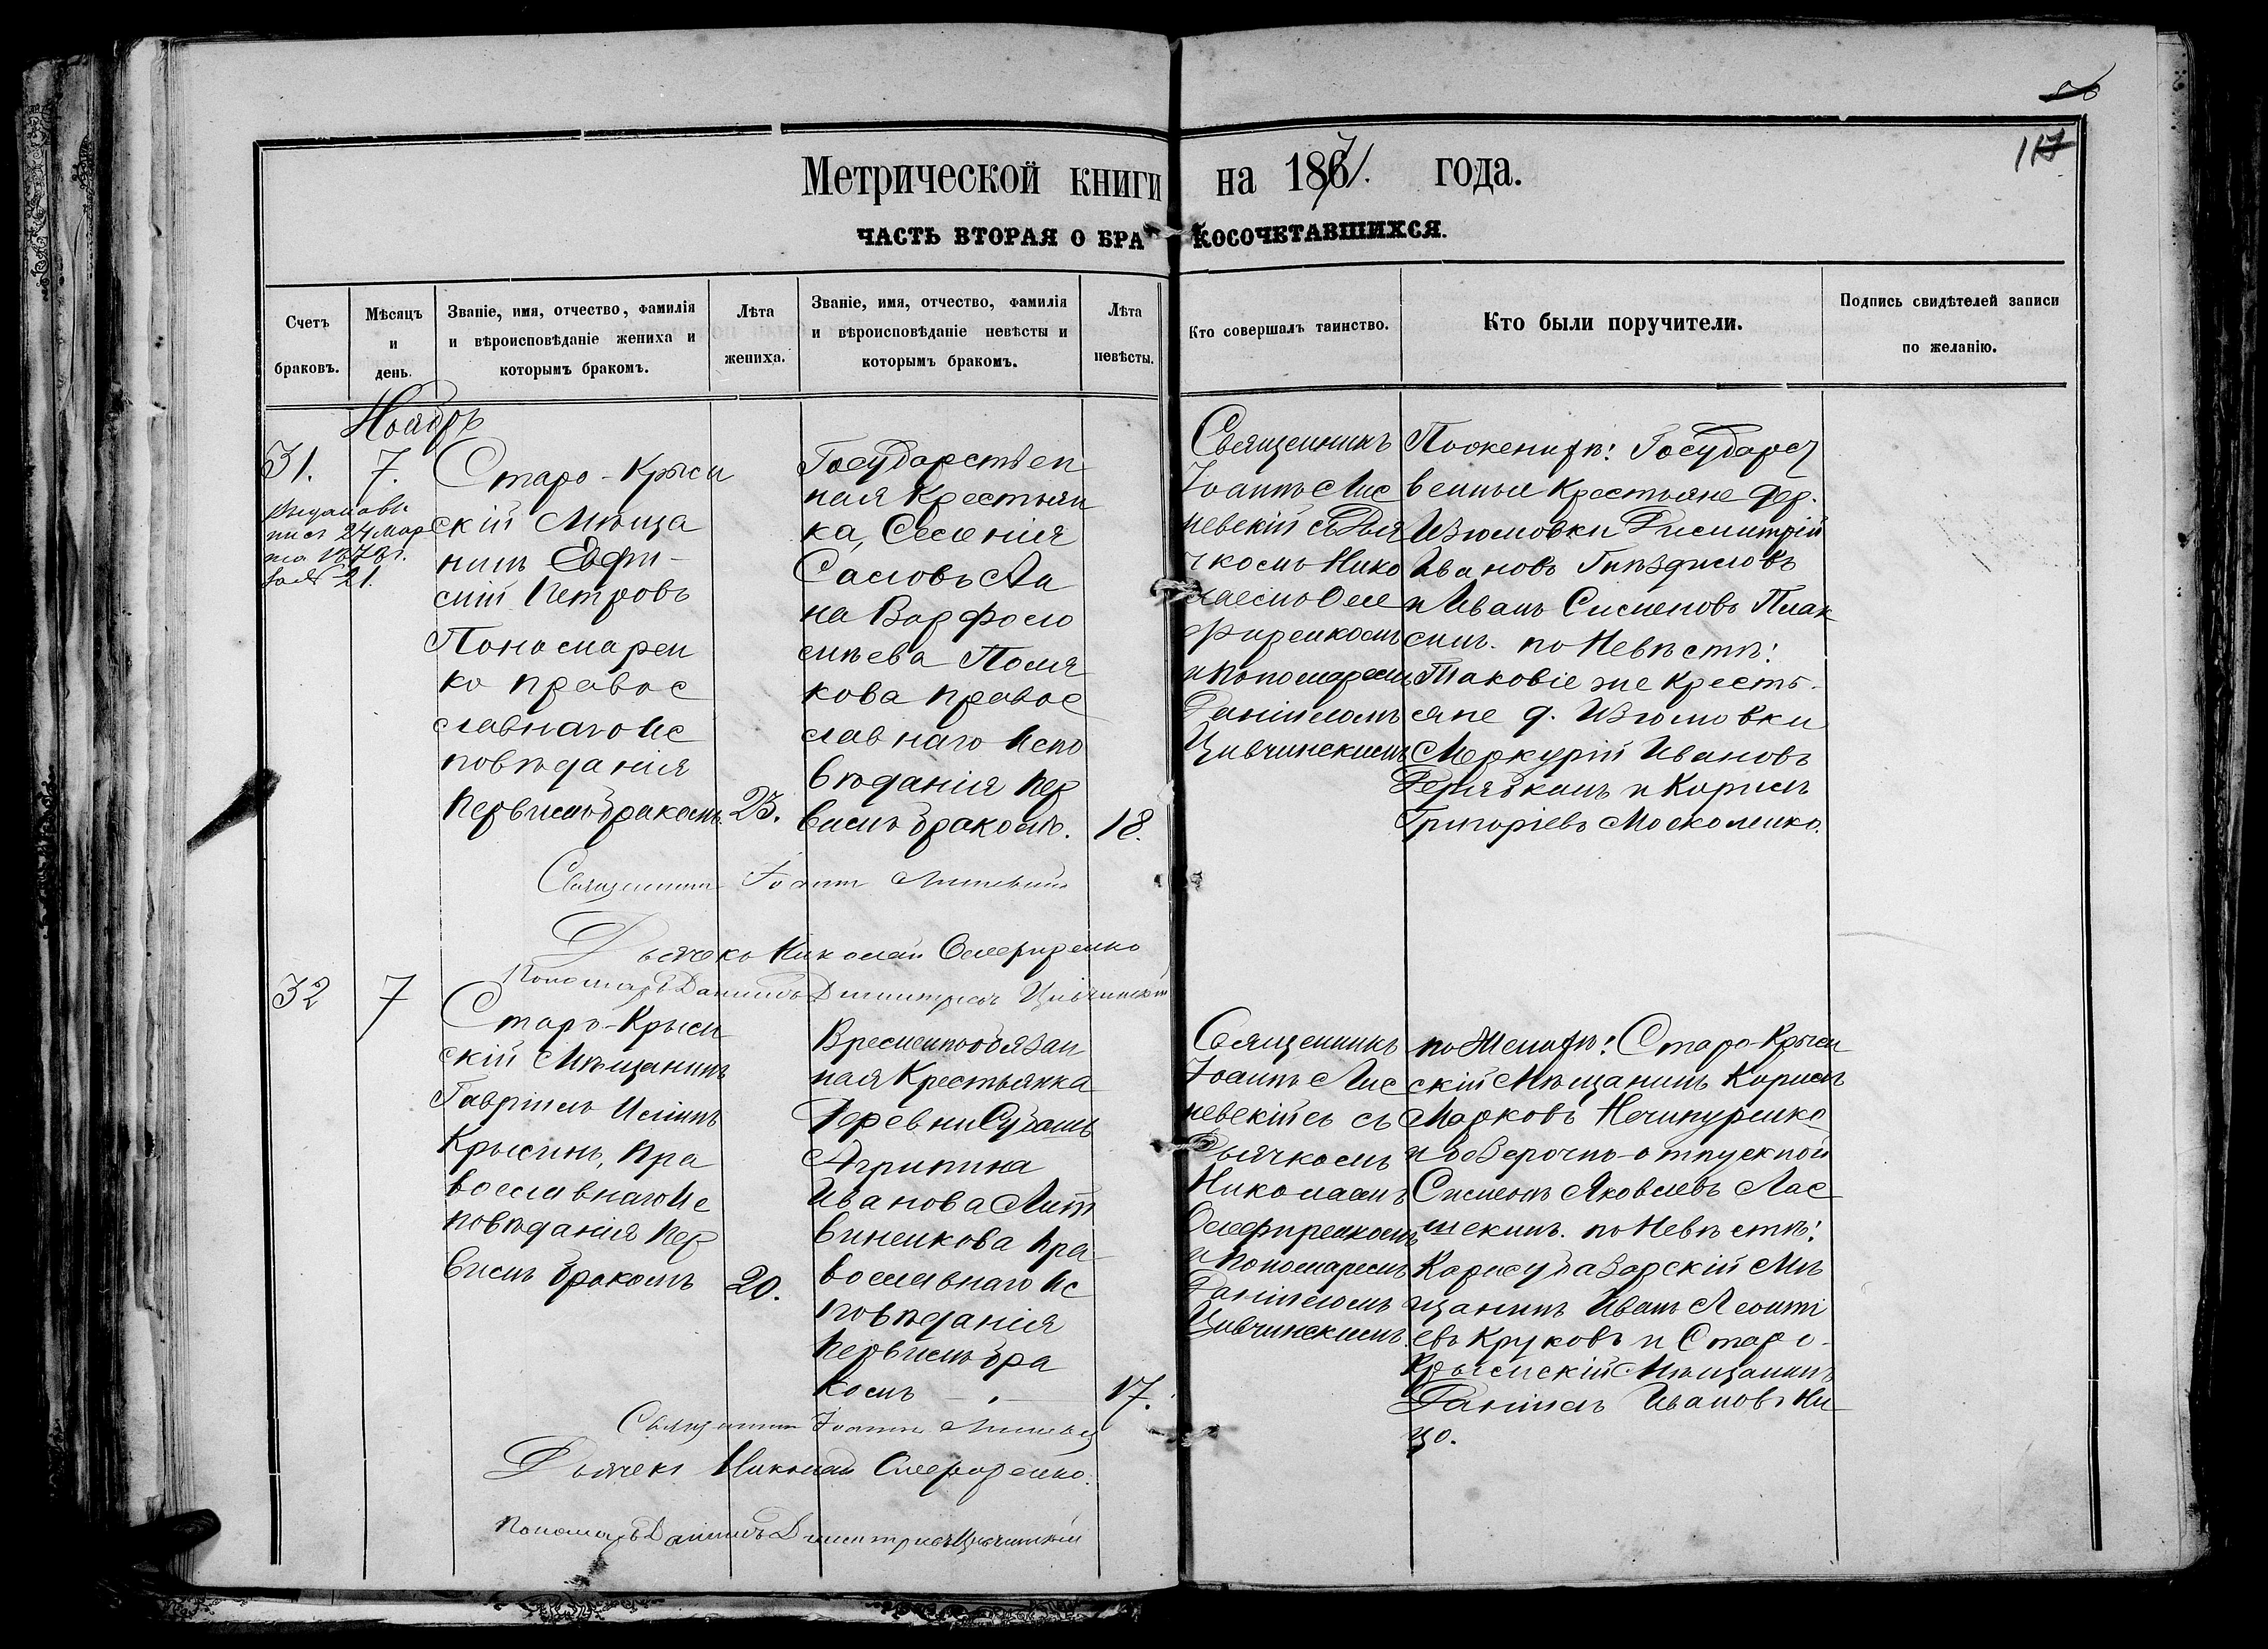 Метрической книги на 1871. года.
ЧАСТЬ ВТОРАЯ О БРАКОСОЧЕТАВШИХСЯ.
Счетъ браковъ.
Мѣсяцъ и день.
Званіе, имя, отчество, фамилія
и вѣроисповѣданіе жениха и
которымъ бракомъ.
Лѣта жениха.
Званіе, имя, отчество, фамилія
и вѣроисповѣданіе невѣсты и
которымъ бракомъ.
Лѣта невѣсты.
Кто совершалъ таинство.
Кто были поручители.
Подпись свидѣтелей записи
по желанію.
Ноябрь
31.
7.
24 мар
21.
Старо-Крым
скій Мѣща
нинъ Евфи-
мій Петровъ
Пономарен
ко правос
лавнаго Ис
повѣданія
первымъ бракомъ.
23.
Государствен
ная Крестьян
ка, Селенія
Саловъ Ан
на Варфоло
мѣева Поля
кова правос
лавнаго Испо
вѣданія пер
вымъ бракомъ.
18.
Священникъ
Іоаннъ Лис
невскій съ Дья
чкомъ Нико
лаемъ Оле
фиренкомъ
и Пономаремъ
Даніиломъ
Цивчинскимъ
По женихѣ: Государст
венные Крестьяне дер.
Изюмовки Димитрій
Ивановъ Гнѣздиловъ
и Иванъ Сименовъ Плак
синъ. по Невѣстѣ:
Таковіе же Кресть-
яне д. Изюмовки
Меркурій Ивановъ
и Кирилъ
Григоріевъ Москаленко.
Священникъ Іоаннъ Лисневскій
Дьячекъ Николай Олефиренко
Пономарь Даніилъ Димитріевъ Цивчинскій
32
7
Старо-Крым
скій Мѣщанинъ
Гавріилъ Ильинъ
Крысинъ, пра
вославнаго Ис
повѣданія пер
вымъ бракомъ
20.
Временнообязан
ная Крестьянка
Деревни Субашъ
Агрипина
Иванова Лит
виненкова пра-
вославнаго Ис
повѣданія
первымъ бра
комъ
17.
Священникъ
Іоаннъ Лис
невскій съ
Дьячкомъ
Николаемъ
Олефиренкомъ
и Пономаремъ
Даніиломъ
Цивчинскимъ.
по Женихѣ: Старо-Крым
скій Мѣщанинъ Кирилъ
Марковъ Нечипуренко
и безсрочно-отпускной
Симеонъ Яковлевъ Лас
шскинъ. по Невѣстѣ:
Карасубазарскій Мѣ
щанинъ Иванъ Леонті
евъ Круковъ и Старо-
Крымскій Мѣщанинъ
Даніилъ Ивановъ Ни
цо.
Священникъ Іоаннъ Лисневскій
Дьячекъ Николай Олефиренко.
Пономарь Даніилъ Димитріевъ Цивчинскій